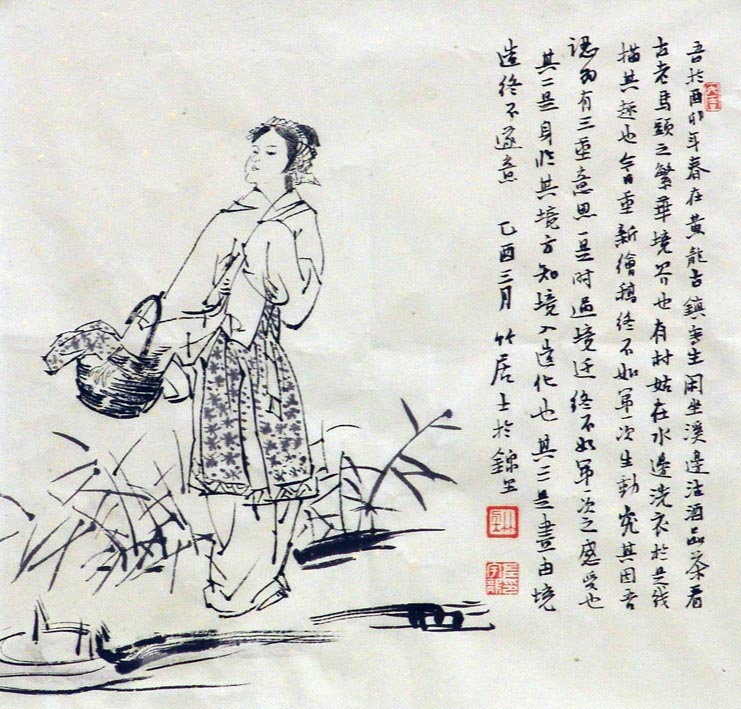 吾於酉卯年春在黄龍古鎮寫生閑坐溪邊沽酒品茶看
古老馬頭之繁華境界也有村姑在水邊洗衣於是线
描其趣也今日重新繪稿终不如第一次生動究其因吾
認为有三重意思一是时過境迁终不如第一次之感受也
其二是身临其境方知境入造化也其三是畫由境
造终不遂意 乙酉三月 竹居士於錦